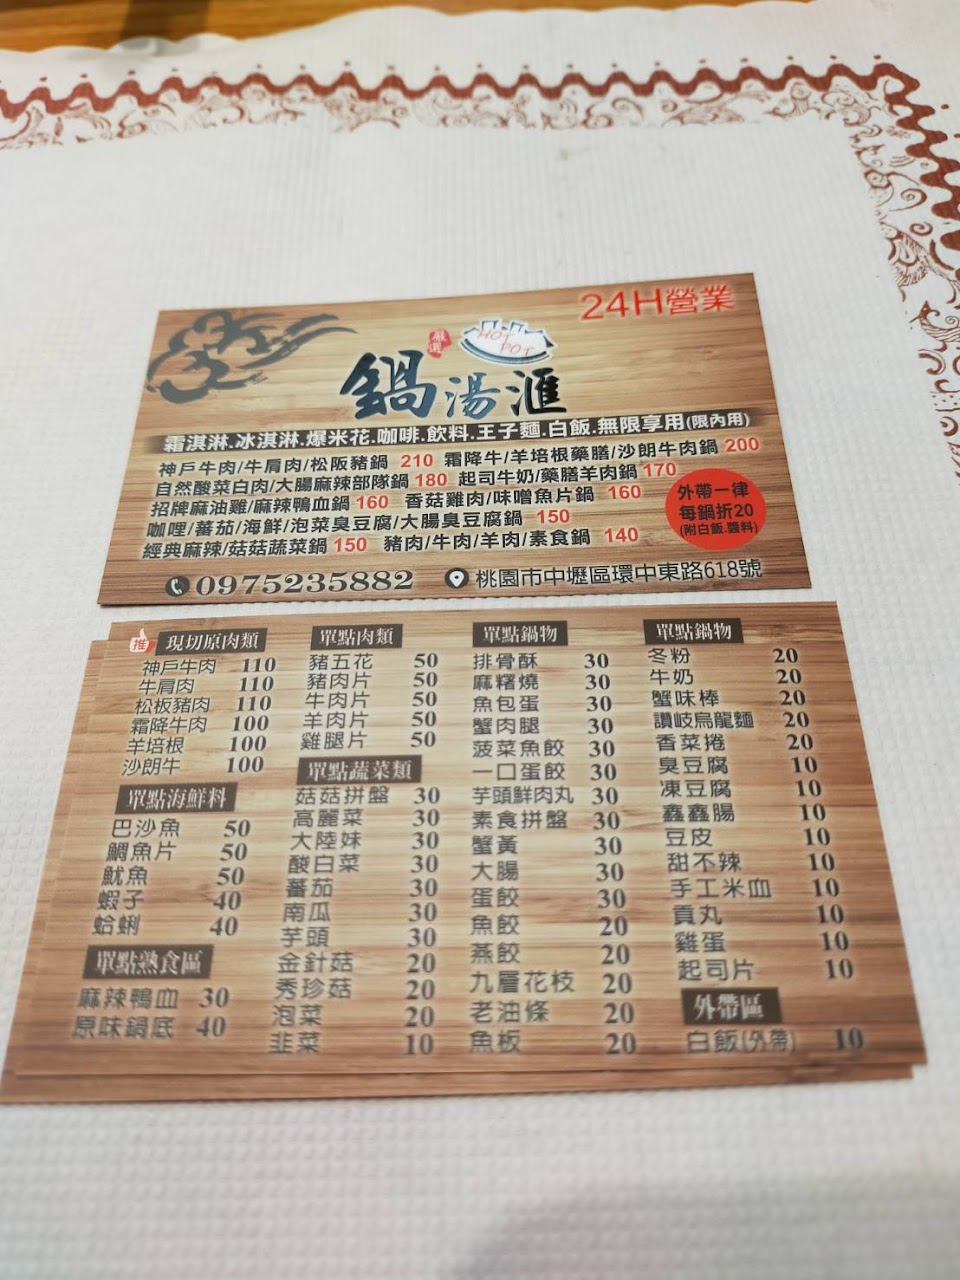 24H營業
嚴選
HOT POT
鍋湯滙
霜淇淋.冰淇淋.爆米花.咖啡.飲料.王子麵.白飯.無限享用(限內用)
神戶牛肉/牛肩肉/松阪豬鍋 210 霜降牛/羊培根藥膳/沙朗牛肉鍋 200
自然酸菜白肉/大腸麻辣部隊鍋 180 起司牛奶/藥膳羊肉鍋 170
招牌麻油雞/麻辣鴨血鍋 160 香菇雞肉/味噌魚片鍋 160
咖哩/蕃茄/海鮮/泡菜臭豆腐/大腸臭豆腐鍋 150
經典麻辣/菇菇蔬菜鍋 150 豬肉/牛肉/羊肉/素食鍋 140
外帶一律
每鍋折20
(附白飯.醬料)
0975235882 桃園市中壢區環中東路618號
推 現切原肉類
神戶牛肉 110
牛肩肉 110
松板豬肉 110
霜降牛肉 100
羊培根 100
沙朗牛 100
單點海鮮料
巴沙魚 50
鯛魚片 50
魷魚 50
蝦子 40
蛤蜊 40
單點熟食區
麻辣鴨血 30
原味鍋底 40
單點肉類
豬五花 50
豬肉片 50
牛肉片 50
羊肉片 50
雞腿片 50
單點蔬菜類
菇菇拼盤 30
高麗菜 30
大陸妹 30
酸白菜 30
蕃茄 30
南瓜 30
芋頭 30
金針菇 20
秀珍菇 20
泡菜 20
韭菜 10
單點鍋物
排骨酥 30
麻糬燒 30
魚包蛋 30
蟹肉腿 30
菠菜魚餃 30
一口蛋餃 30
芋頭鮮肉丸 30
素食拼盤 30
蟹黃 30
大腸 30
蛋餃 30
魚餃 20
燕餃 20
九層花枝 20
老油條 20
魚板 20
單點鍋物
冬粉 20
牛奶 20
蟹味棒 20
讚岐烏龍麵 20
香菜捲 20
臭豆腐 10
凍豆腐 10
鑫鑫腸 10
豆皮 10
甜不辣 10
手工米血 10
貢丸 10
雞蛋 10
起司片 10
外帶區
白飯(外帶) 10